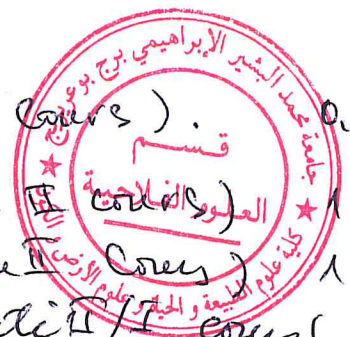 جامعة محمد البشير الإبراهيمي برج بوعريريج
قسم
العلوم الفلاحية
كلية علوم الطبيعة و الحياة و علوم الأرض و
Cours ). 0.
II cours) 1
II Cours) 1
II/I cours